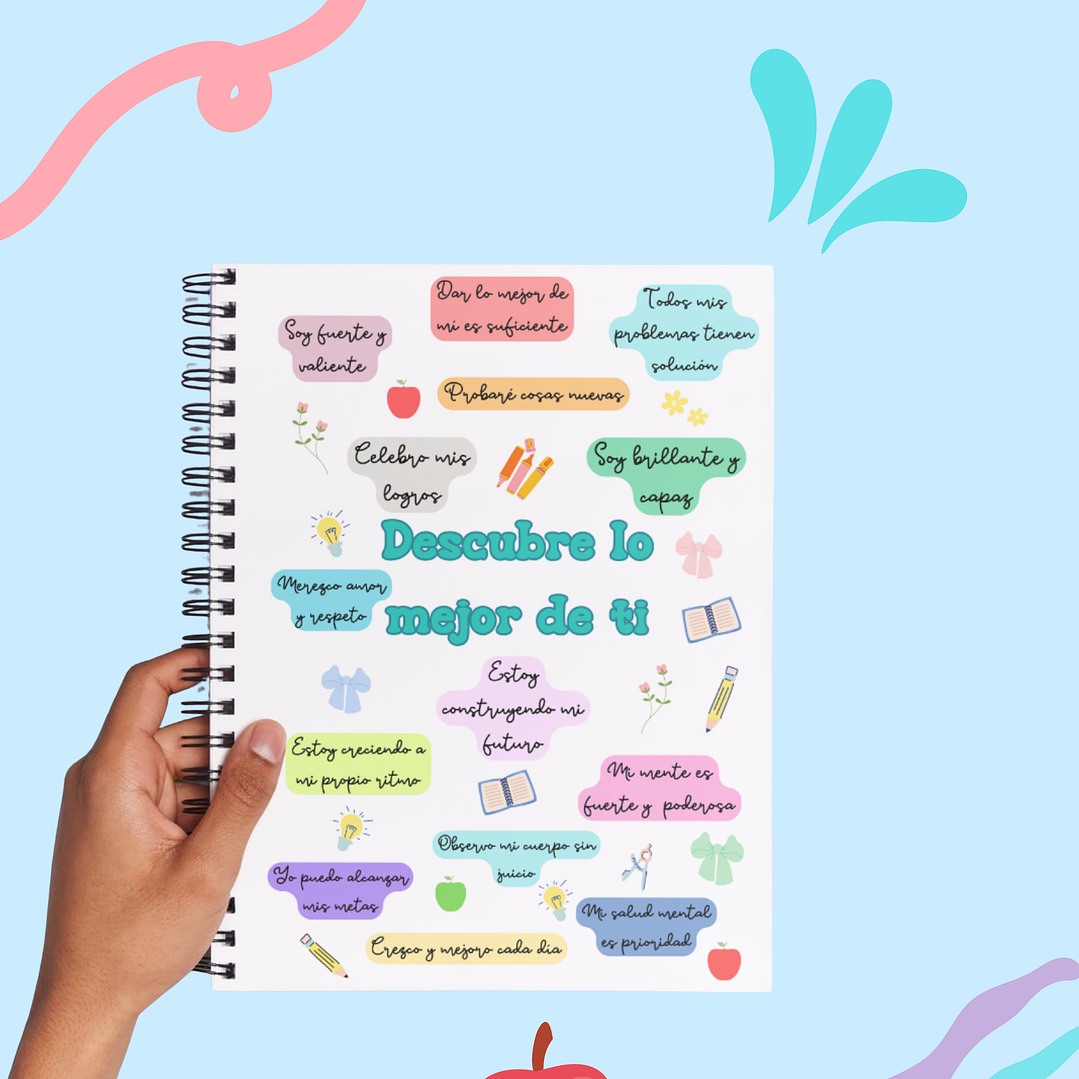 Dar lo mejor de
mi es suficiente
Todos mis
problemas tienen
solución
Soy fuerte y
valiente
Probaré cosas nuevas
Celebro mis
logros
Soy brillante y
capaz
Descubre lo
mejor de ti
Merezco amor
y respeto
Estoy
construyendo mi
futuro
Estoy creciendo a
mi propio ritmo
Mi mente es
fuerte y poderosa
Observo mi cuerpo sin
juicio
Yo puedo alcanzar
mis metas
Mi salud mental
es prioridad
Crezco y mejoro cada dia